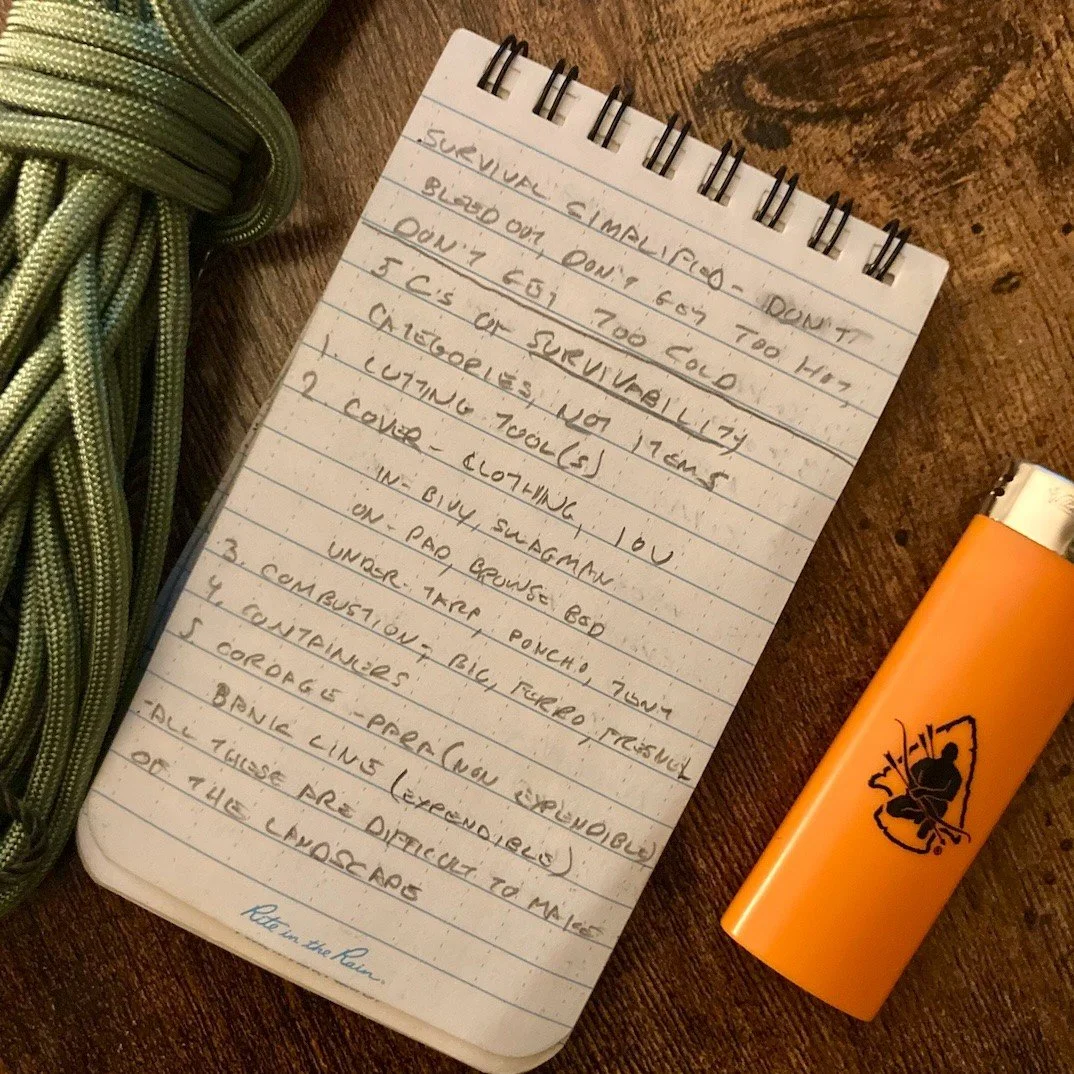 .SURVIVAL SIMPLIFIED - DON'T
BLEED OUT, DON'T GET TOO HOT,
DON'T GET TOO COLD
5 C'S OF SURVIVABILITY
CATEGORIES, NOT ITEMS
1. CUTTING TOOL(S)
2 COVER - CLOTHING, IOU
IN - BIVY, SWAGMAN
ON - PAD, BROWSE BED
UNDER - TARP, PONCHO, TENT
3. COMBUSTION - BIC, FERRO, FRESNEL
4. CONTAINERS
5 CORDAGE - PARA (NON EXPENDIBLE)
BANK LINE (EXPENDIBLE)
-ALL THESE ARE DIFFICULT TO MAKE
OF THE LANDSCAPE
Rite in the Rain.